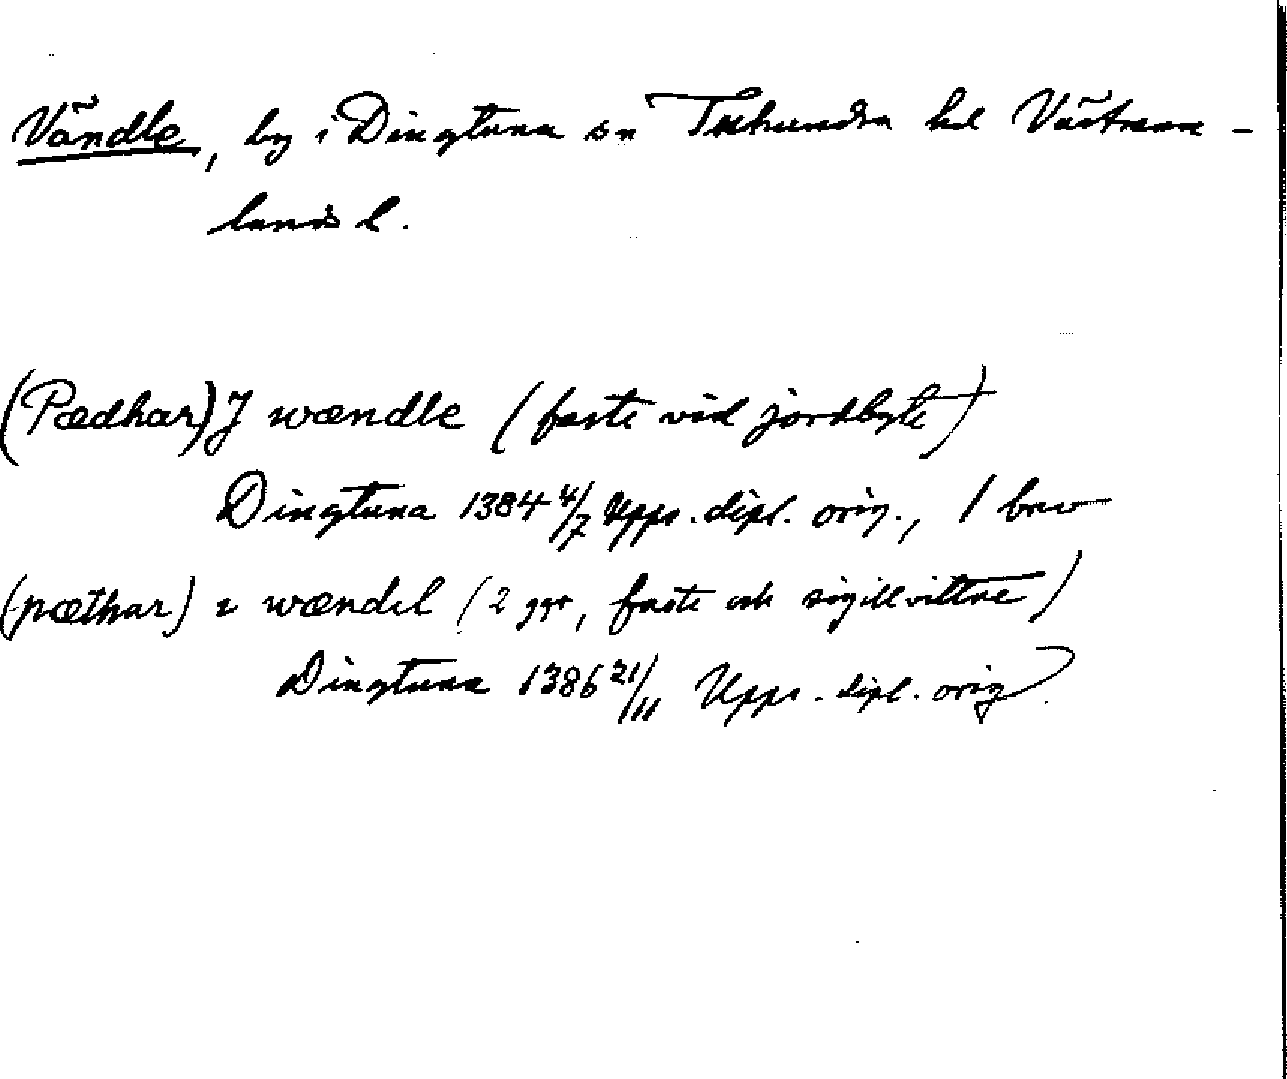 Vändle, by i Dingtuna sn Tuhundra hd Västman-
lands l.
(Pædhar) J wændle (faste vid jordbyte)
Dingtuna 1384 4/7 Upps. dipl. orig., 1 brev
(pæthar) i wændel (2 ggr, faste och sigillvittne)
Dingtuna 1386 21/11 Upps. dipl. orig.